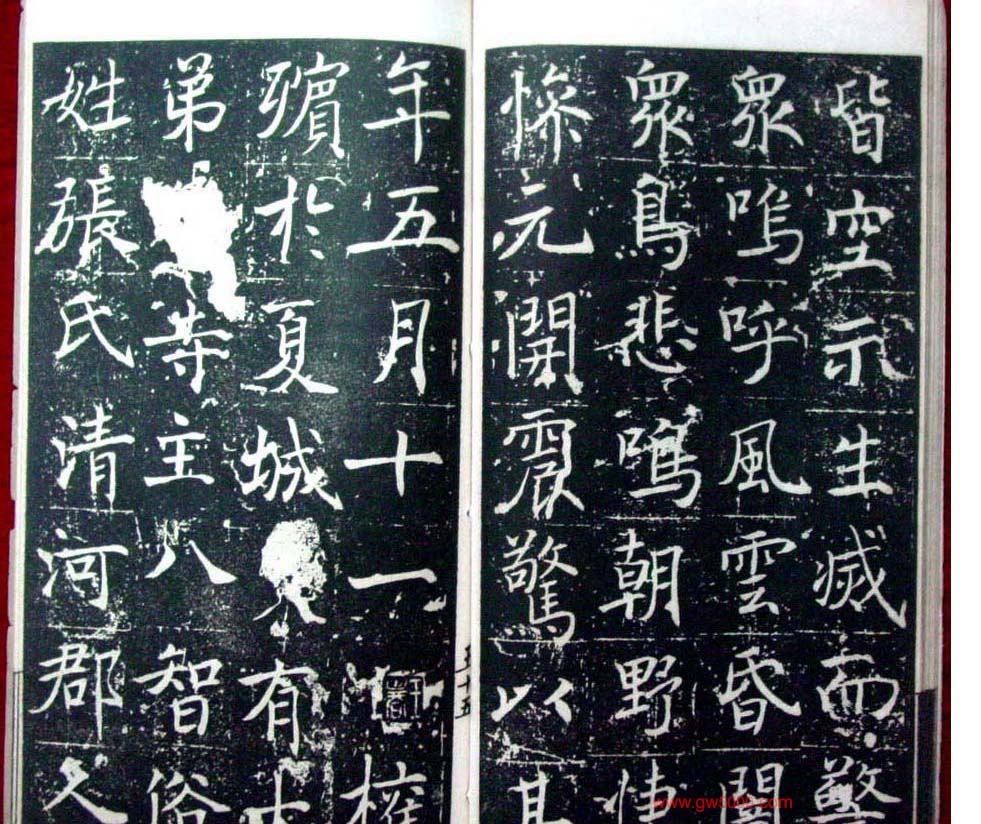 皆空示生滅而警
眾嗚呼風雲昏闇
眾鳥悲鳴朝野悽
慘元開震驚以其
年五月十一權
殯於夏城有
弟寺主八智俗
姓張氏清河郡久
五十五
www.gw5000.com